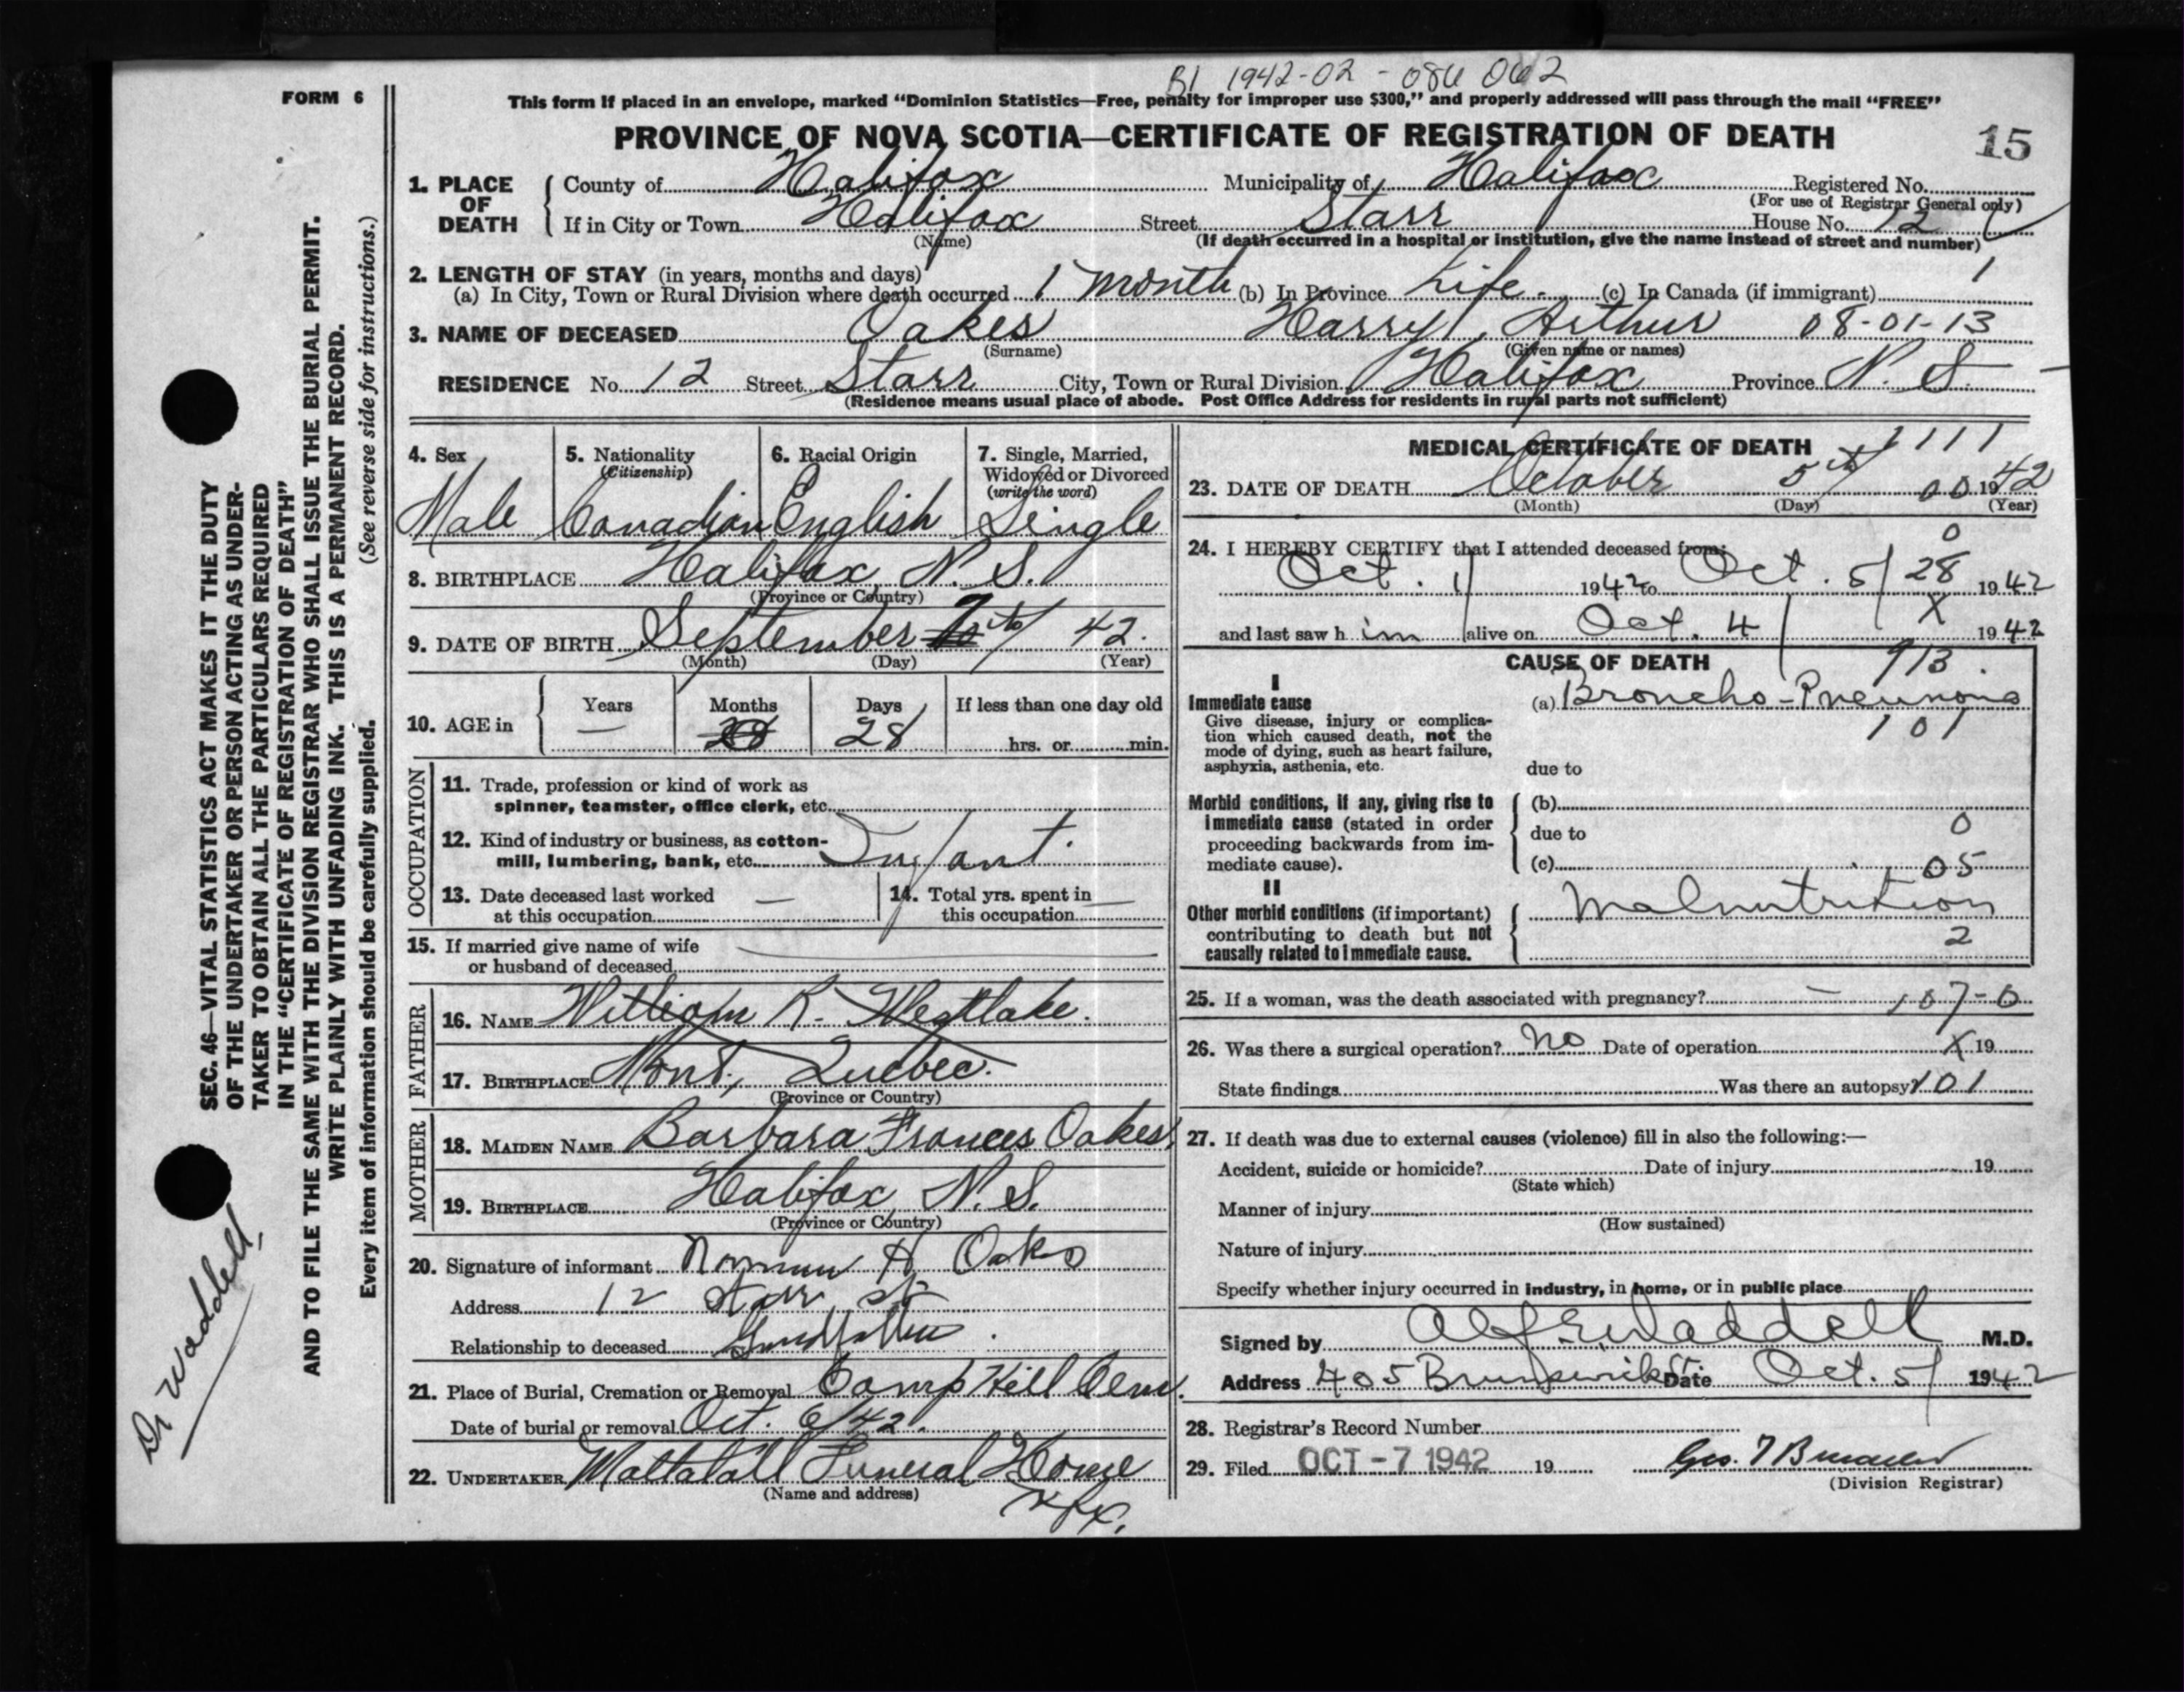 B1 1942-02-086 062
FORM 6
This form if placed in an envelope, marked “Dominion Statistics—Free, penalty for improper use $300,” and properly addressed will pass through the mail “FREE”
PROVINCE OF NOVA SCOTIA—CERTIFICATE OF REGISTRATION OF DEATH
15
1. PLACE OF DEATH
County of Halifax Municipality of Halifax Registered No.
(For use of Registrar General only)
If in City or Town Halifax Street Starr House No. 12
(Name) (If death occurred in a hospital or institution, give the name instead of street and number)
2. LENGTH OF STAY (in years, months and days) 1
(a) In City, Town or Rural Division where death occurred 1 month (b) In Province Life. (c) In Canada (if immigrant)
3. NAME OF DECEASED Oakes Harry, Arthur 08-01-13
(Surname) (Given name or names)
RESIDENCE No. 12 Street Starr City, Town or Rural Division Halifax Province N. S.
(Residence means usual place of abode. Post Office Address for residents in rural parts not sufficient)
4. Sex
Male
5. Nationality
(Citizenship)
Canadian
6. Racial Origin
English
7. Single, Married,
Widowed or Divorced
(write the word)
Single
8. BIRTHPLACE Halifax, N. S.
(Province or Country)
9. DATE OF BIRTH September 7th 42.
(Month) (Day) (Year)
10. AGE in
Years Months Days If less than one day old
— 28 28 hrs. or min.
OCCUPATION
11. Trade, profession or kind of work as
spinner, teamster, office clerk, etc.
12. Kind of industry or business, as cotton-
mill, lumbering, bank, etc. Infant.
13. Date deceased last worked
at this occupation —
14. Total yrs. spent in
this occupation —
15. If married give name of wife
or husband of deceased
FATHER
16. NAME William R. Westlake.
17. BIRTHPLACE Mont., Quebec.
(Province or Country)
MOTHER
18. MAIDEN NAME Barbara Frances Oakes,
19. BIRTHPLACE Halifax, N. S.
(Province or Country)
20. Signature of informant Norman H Oakes
Address 12 Starr St
Relationship to deceased Grandfather.
21. Place of Burial, Cremation or Removal Camp Hill Cem.
Date of burial or removal Oct. 6/42.
22. UNDERTAKER Mattatall Funeral Home
(Name and address)
Hfx.
MEDICAL CERTIFICATE OF DEATH 1111
23. DATE OF DEATH October 5th 00 1942
(Month) (Day) (Year)
0
24. I HEREBY CERTIFY that I attended deceased from:
Oct. 1/ 1942 to Oct. 5/ 28 1942
and last saw him alive on Oct. 4/ X 1942
CAUSE OF DEATH 913
I
Immediate cause
Give disease, injury or complica-
tion which caused death, not the
mode of dying, such as heart failure,
asphyxia, asthenia, etc.
(a) Broncho-Pneumonia
101
due to
Morbid conditions, if any, giving rise to
immediate cause (stated in order
proceeding backwards from im-
mediate cause).
(b)
due to 0
(c) 05
II
Other morbid conditions (if important)
contributing to death but not
causally related to immediate cause.
Malnutrition
2
25. If a woman, was the death associated with pregnancy? — 107-0
26. Was there a surgical operation? No Date of operation X 19
State findings Was there an autopsy? 101
27. If death was due to external causes (violence) fill in also the following:—
Accident, suicide or homicide? Date of injury 19
(State which)
Manner of injury
(How sustained)
Nature of injury
Specify whether injury occurred in industry, in home, or in public place
Signed by Alf E Waddell M.D.
Address 405 Brunswick St Date Oct. 5/ 1942
28. Registrar's Record Number
29. Filed OCT -7 1942 19
(Division Registrar)
SEC. 46—VITAL STATISTICS ACT MAKES IT THE DUTY
OF THE UNDERTAKER OR PERSON ACTING AS UNDER-
TAKER TO OBTAIN ALL THE PARTICULARS REQUIRED
IN THE “CERTIFICATE OF REGISTRATION OF DEATH”
AND TO FILE THE SAME WITH THE DIVISION REGISTRAR WHO SHALL ISSUE THE BURIAL PERMIT.
WRITE PLAINLY WITH UNFADING INK. THIS IS A PERMANENT RECORD.
Every item of information should be carefully supplied. (See reverse side for instructions.)
Dr Waddell